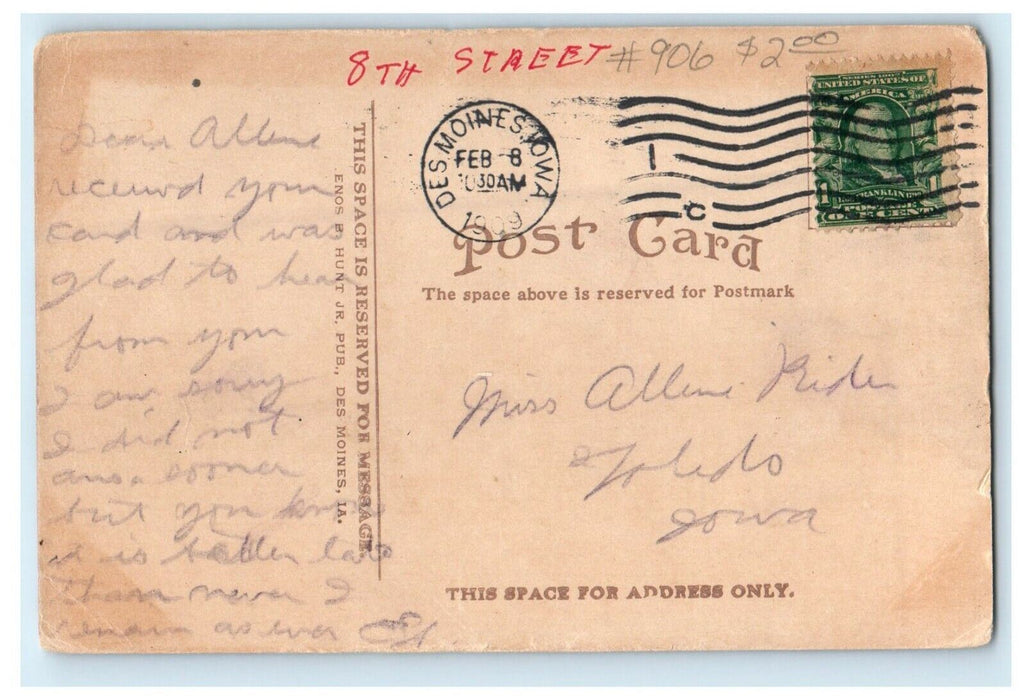 8TH STREET #906 $2.00
DES MOINES, IOWA
FEB 8
10 30 AM
1909
1
C
SERIES 1902
UNITED STATES OF
AMERICA
FRANKLIN
1 1
ONE CENT
Post Card
The space above is reserved for Postmark
THIS SPACE IS RESERVED FOR MESSAGE.
ENOS B. HUNT JR. PUB., DES MOINES, IA.
Dear Allene
received your
card and was
glad to hear
from you
I am sorry
I did not
ans. sooner
but you know
it is better late
than never I
remain as ever
Miss Allene Rider
Toledo
Iowa
THIS SPACE FOR ADDRESS ONLY.